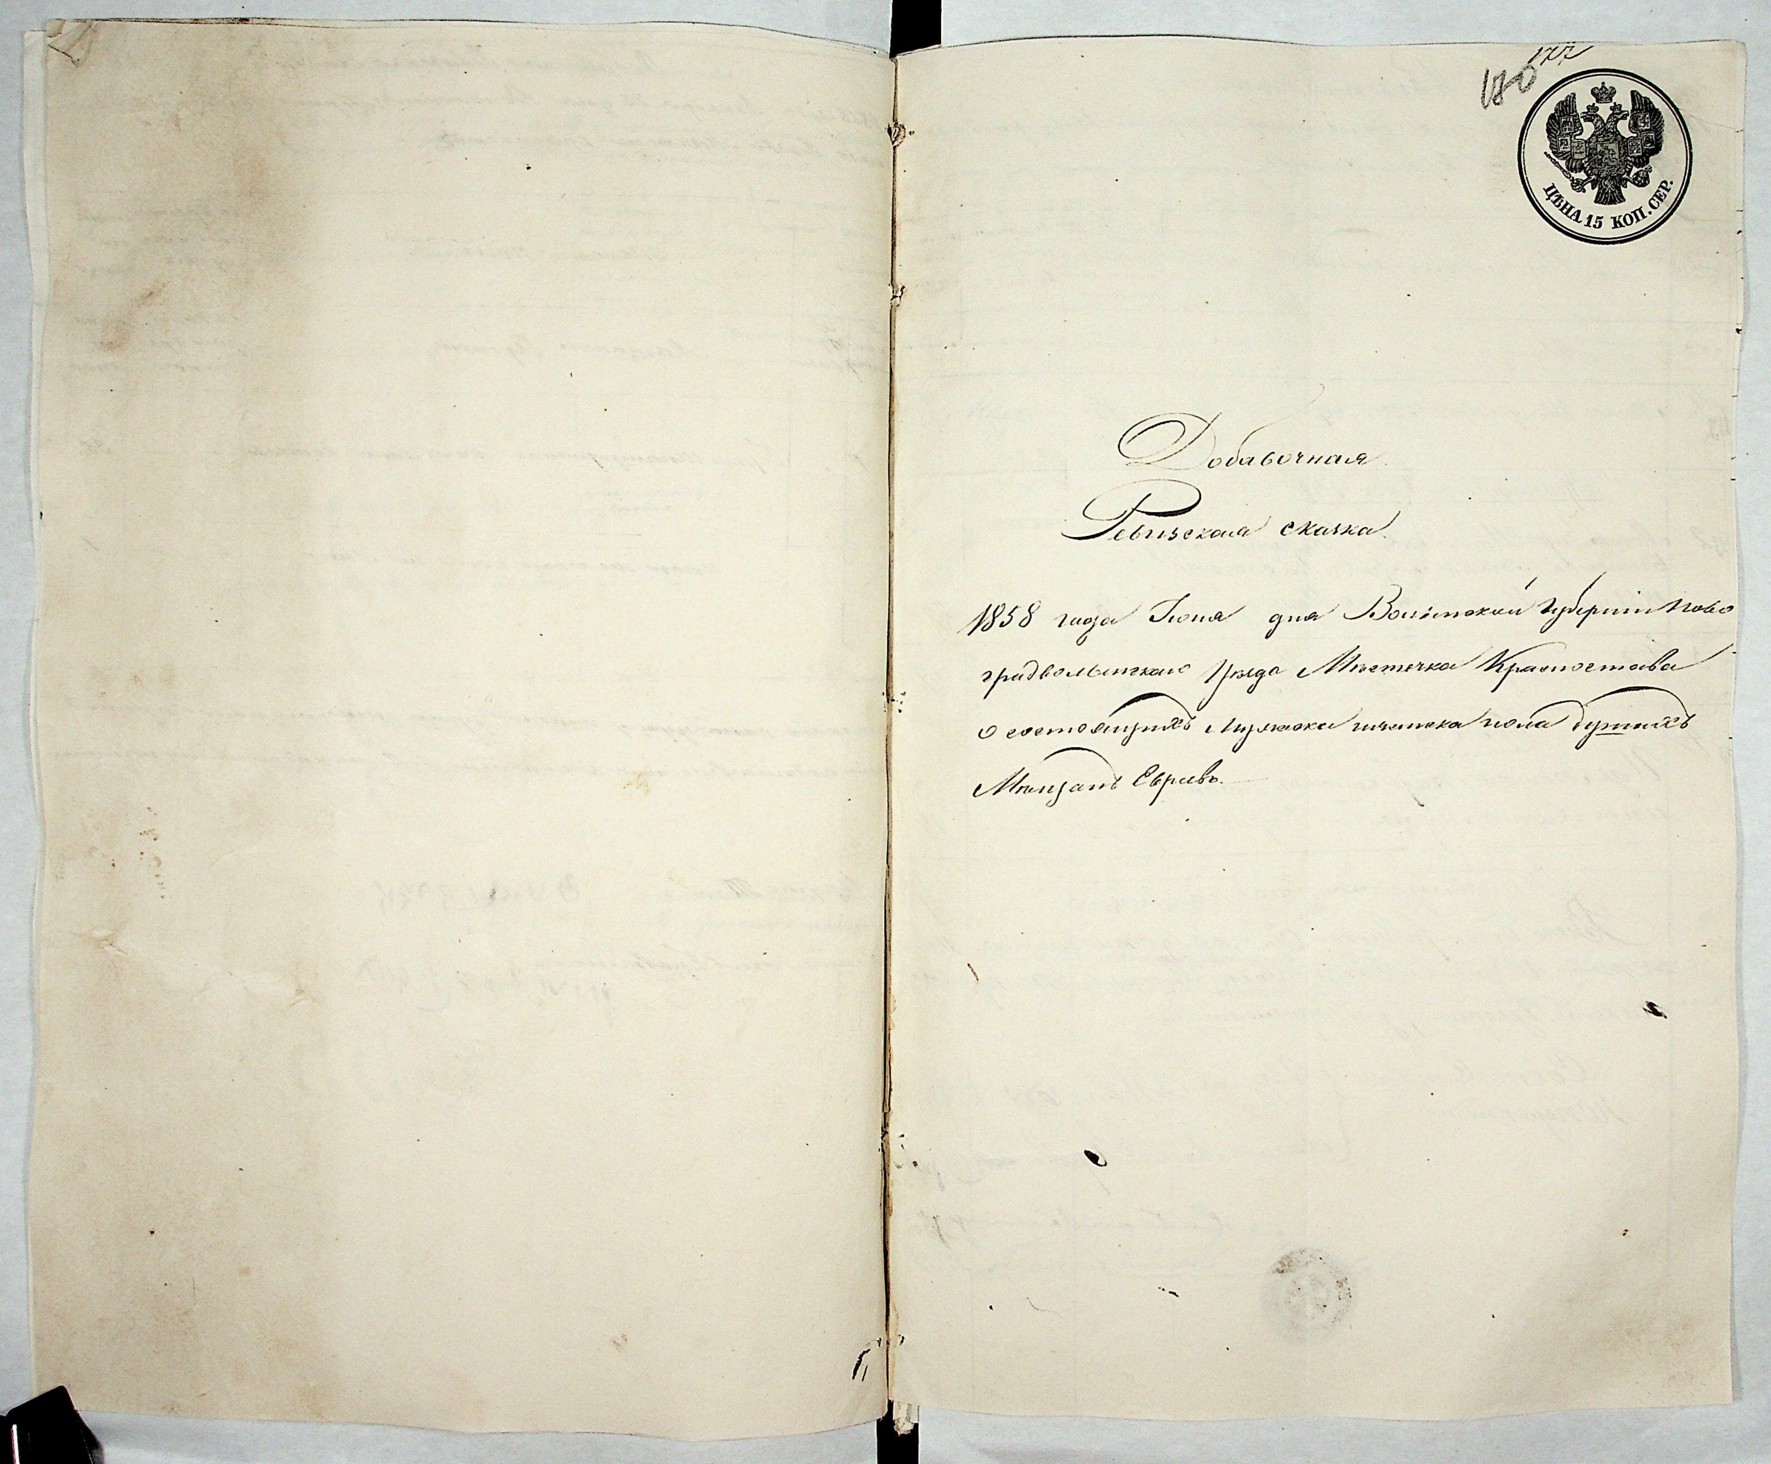 177
180
ЦѢНА 15 КОП. СЕР.
Добавочная
Ревизская сказка
1858 года Іюня дня Волынской Губерніи Ново
градволынскаго Уѣзда Мѣстечка Красностава
о состоящихъ Мужеска и женска пола душахъ
Мѣщанъ Евреевъ.